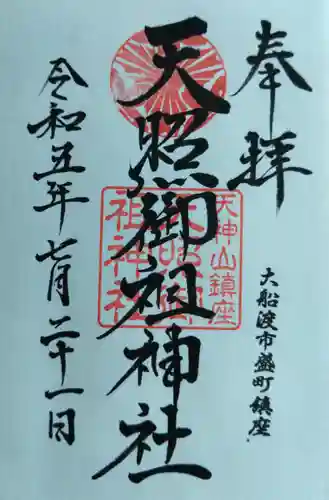 奉拝
大船渡市盛町鎮座
天照御祖神社
天神山鎮座
天照御
祖神社
令和五年七月二十一日